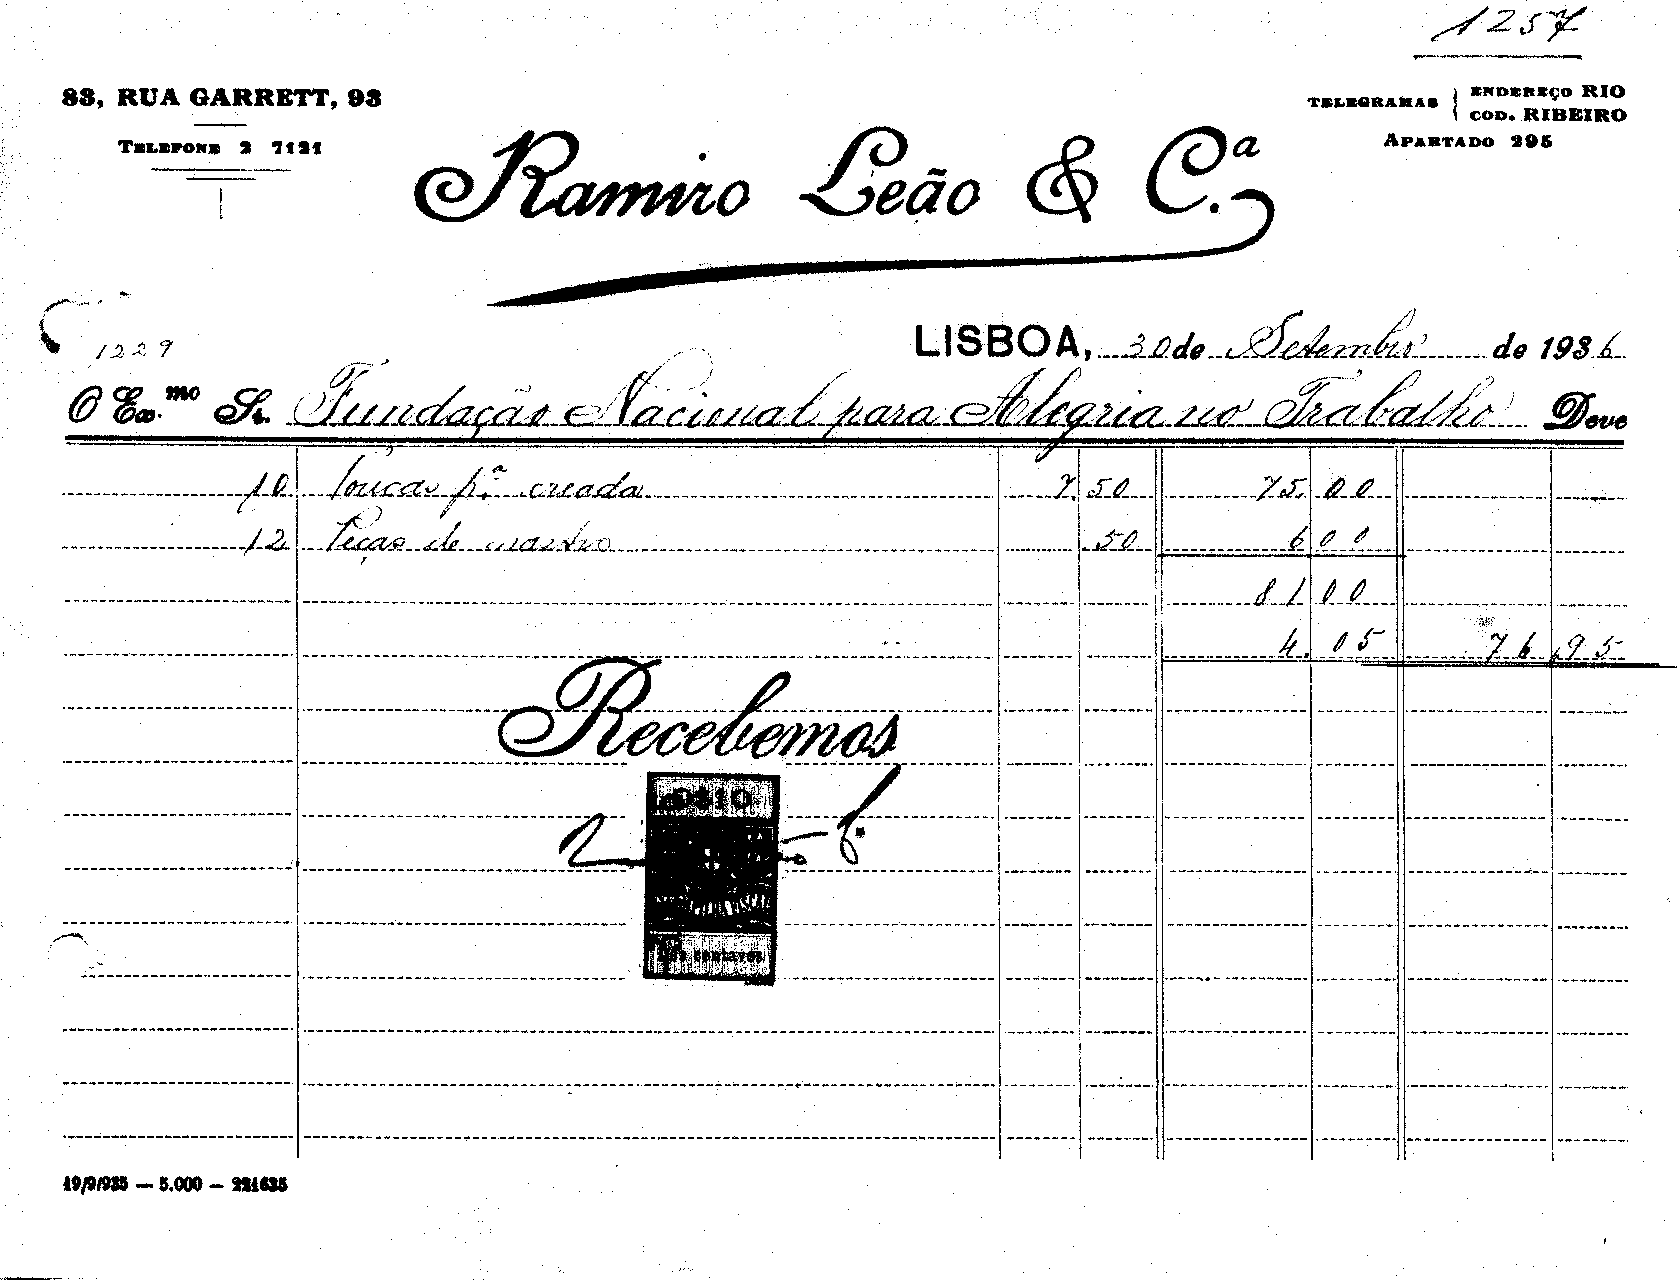 1257
83, RUA GARRETT, 93
TELEFONE 2 7121
TELEGRAMAS ENDEREÇO RIO
COD. RIBEIRO
APARTADO 295
Ramiro Leão & Cª.
1229
LISBOA, 30 de Setembro de 1936
O Ex.mo Sr. Fundação Nacional para Alegria no Trabalho Deve
10 Toucas p.ª creada 7.50 75.00
12 Peças de nastro .50 6 00
81 00
4.05 76.95
Recebemos
0$10
ESTAMPILHA FISCAL
centavos
19/9/935 — 5.000 — 221635